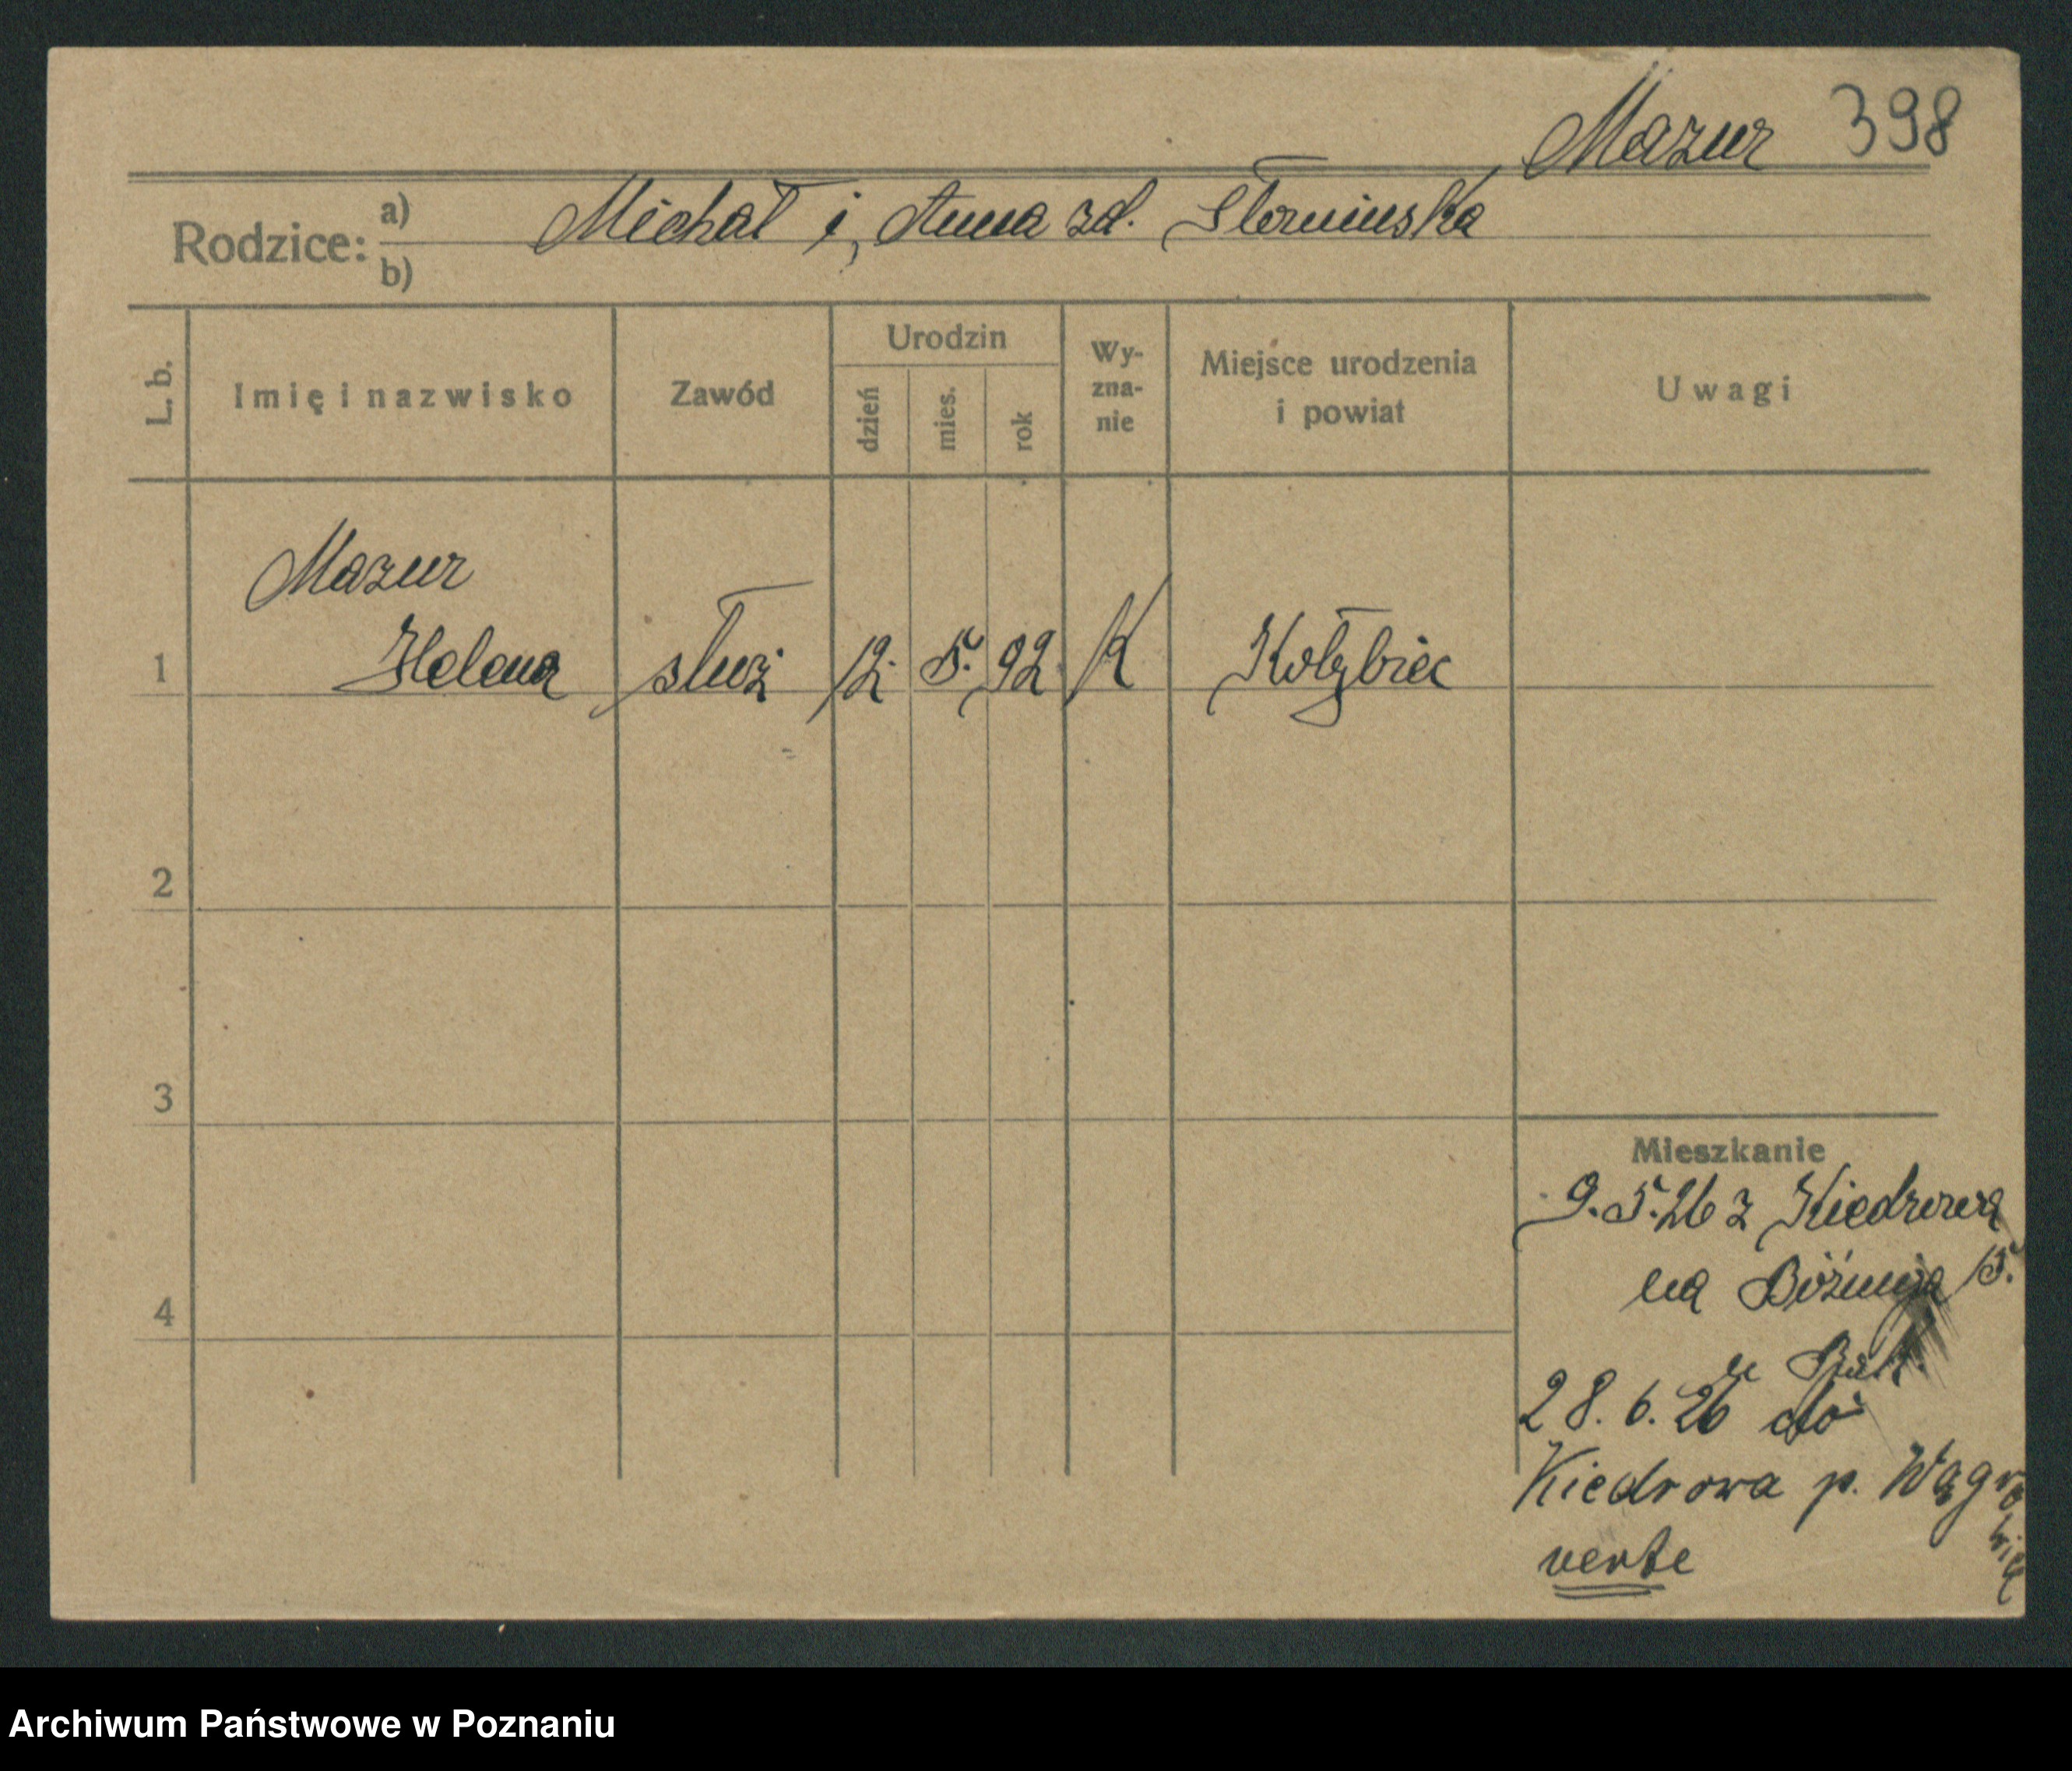 Mazur 398
Rodzice: a) Michał i, Anna zd. Słomińska
b)
L. b. Imię i nazwisko Zawód Urodzin dzień mies. rok Wy-zna-nie Miejsce urodzenia i powiat Uwagi
Mazur
1 Helena służ 12. 5. 92 K Kołybiec
2
3
4
Mieszkanie
9.5.26 z Kiedrowa
na Bóżnicza 15.
u
28.6.26 do
Kiedrowa p. Wągrowiec
verte
Archiwum Państwowe w Poznaniu